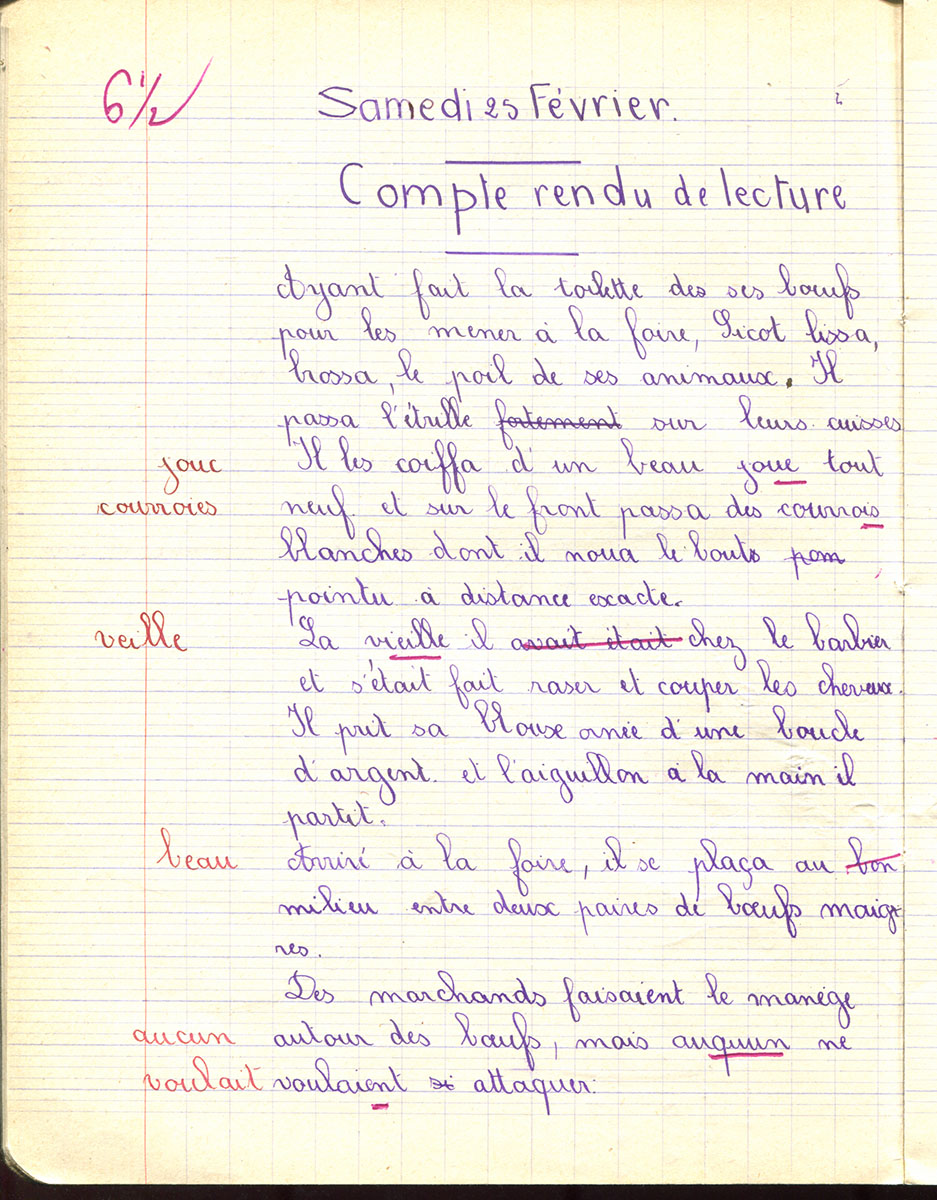 6 1/2
Samedi 25 Février.
Compte rendu de lecture
Ayant fait la toilette des ses bœufs
pour les mener à la foire, Picot lissa,
brossa, le poil de ses animaux. Il
passa l'étrille fortement sur leurs cuisses
jouc Il les coiffa d'un beau joue tout
courroies neuf et sur le front passa des courrois
blanches dont il noua le bouts pom
pointu à distance exacte.
veille La vieille il avait était chez le barbier
et s'était fait raser et couper les cheveux.
Il prit sa blouse ornée d'une boucle
d'argent. et l'aiguillon à la main il
partit.
beau Arrivé à la foire, il se plaça au bon
milieu entre deux paires de bœufs maig-
res.
Des marchands faisaient le manége
aucun autour des bœufs, mais auquun ne
voulait voulaient attaquer.